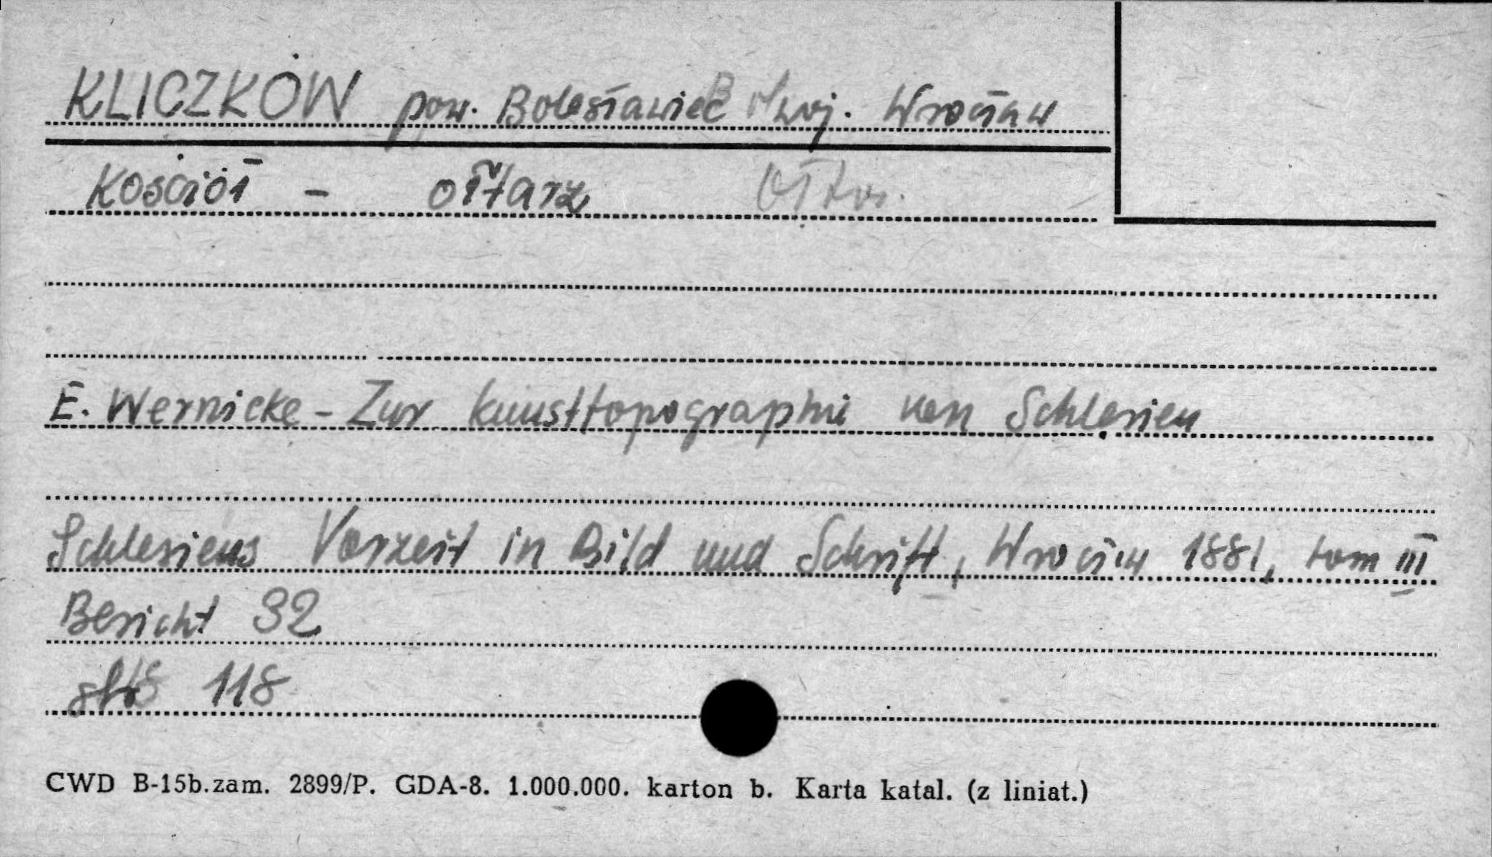 KLICZKÓW pow. Bolesławiec woj. Wrocław
Kościół - ołtarz Ołtar.
E. Wernicke - Zur Kunsttopographie von Schlesien
Schlesiens Vorzeit in Bild und Schrift, Wrocław 1881, tom III
Bericht 32
str 118
CWD B-15b.zam. 2899/P. GDA-8. 1.000.000. karton b. Karta katal. (z liniat.)